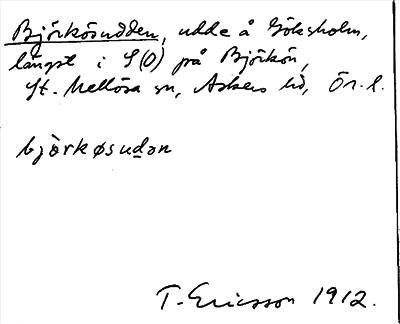 Björkösudden, udde å Göksholm,
längst i S(O) på Björkön,
St. Mellösa sn, Askers hd, Ör. l.
björkøsudən
T. Ericsson 1912.